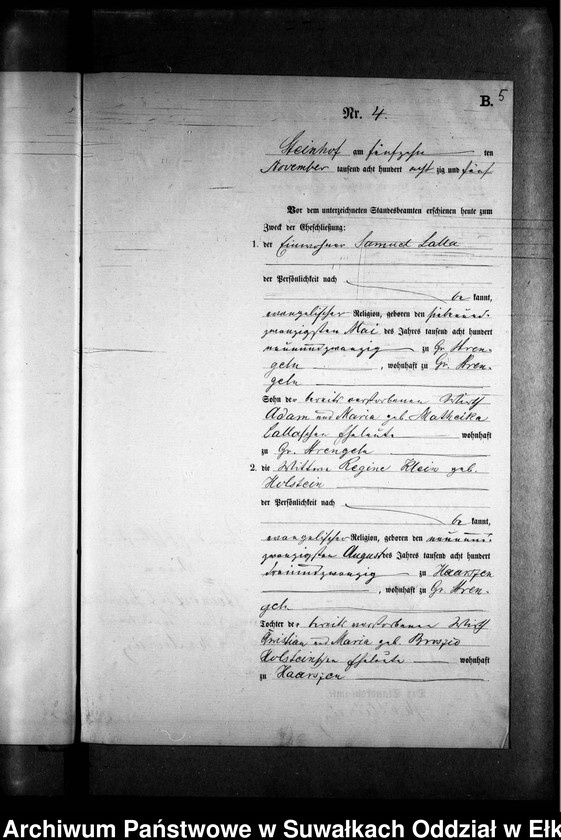 B. 5
Nr. 4.
Steinhof am fünfzehn ten
November tausend acht hundert acht zig und fünf
Vor dem unterzeichneten Standesbeamten erschienen heute zum
Zweck der Eheschließung:
1. der Einwohner Samuel Lalla
der Persönlichkeit nach
be kannt,
evangelischer Religion, geboren den siebenund-
zwanzigsten Mai des Jahres tausend acht hundert
neunundzwanzig zu Gr. Stren-
geln, wohnhaft zu Gr. Stren-
geln
Sohn der bereits verstorbenen Wirth
Adam und Maria geb. Matheika
Lallaschen Eheleute wohnhaft
zu Gr. Strengeln
2. die Wittwe Regine Klein geb.
Holstein
der Persönlichkeit nach
be kannt,
evangelischer Religion, geboren den neunund-
zwanzigsten August des Jahres tausend acht hundert
dreiundzwanzig zu Haarszen
, wohnhaft zu Gr. Stren-
geln
Tochter der bereits verstorbenen Wirth
Christian und Maria geb. Broszio
Holsteinschen Eheleute wohnhaft
zu Haarszen
Archiwum Państwowe w Suwałkach Oddział w Ełk